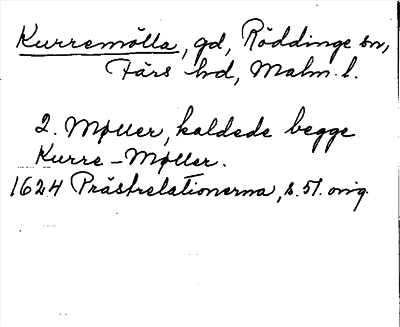 Kurremölla, gd, Röddinge sn,
Färs hd, Malm. l.
2. Møller, kaldede begge
Kurre-Møller.
1624 Prästrelationerna, s. 51. orig.